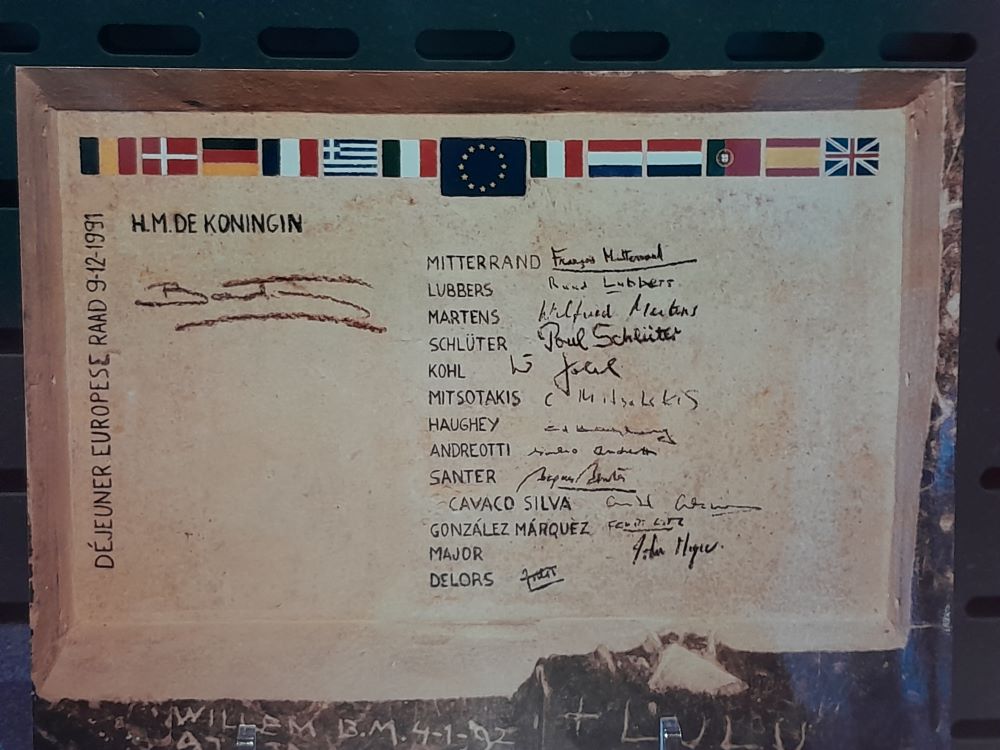 DÉJEUNER EUROPESE RAAD 9-12-1991
H.M. DE KONINGIN
MITTERRAND François Mitterrand
LUBBERS Ruud Lubbers
MARTENS Wilfried Martens
SCHLÜTER Poul Schlüter
KOHL
MITSOTAKIS C Mitsotakis
HAUGHEY
ANDREOTTI
SANTER
CAVACO SILVA
GONZÁLEZ MÁRQUEZ
MAJOR John Major
DELORS
WILLEM B.M. 4-1-92 + LULU